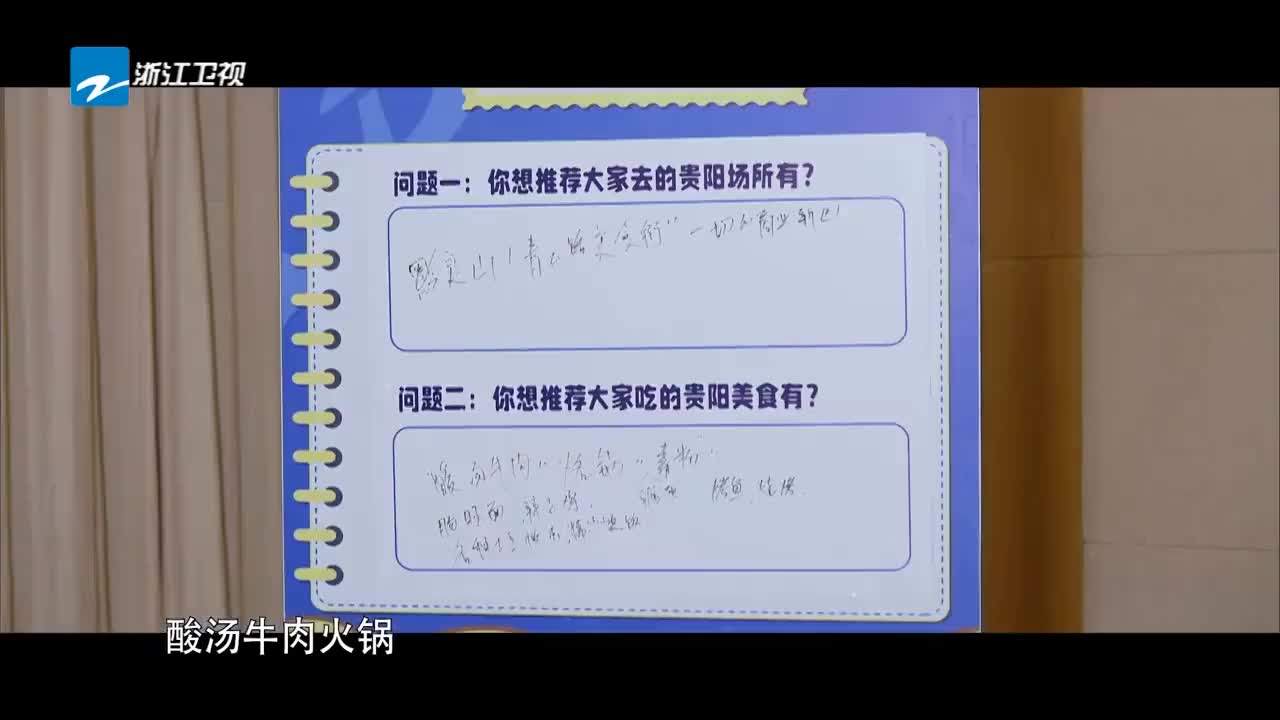 浙江卫视
问题一：你想推荐大家去的贵阳场所有？
黔灵山！青云路美食街"一切不商业新区！
问题二：你想推荐大家吃的贵阳美食有？
酸汤牛肉""烙锅""素粉"
肠旺面 辣子鸡. 烤鱼.
酸汤牛肉火锅